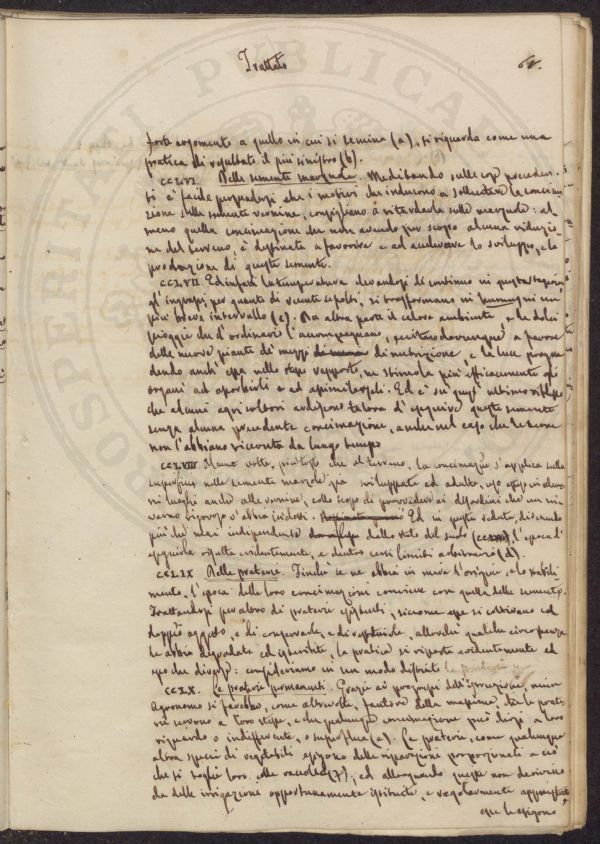 Trattato
forte argomento a quello in cui si semina (a), si riguarda come una
pratica di resultato il più sinistro (b).
CCLVI. Nelle semente marzuole. Meditando sulle cose preceden-
ti è facile persuadersi che i motivi che inducono a sollecitare la concima-
zione delle semente vernine, consigliano a ritardarla sulle marzuole: al-
meno quella concimazione che non avendo per scopo alcuna riduzio-
ne del terreno, è destinata a favorire e ad accelerare lo sviluppo, e la
produzione di queste semente.
CCLVII. Ed infatti la temperatura elevandosi di continuo in questa stagione
gl'ingrassi, per quanto di recente sepolti, si trasformano in humus in un
più breve intervallo (c). Da altra parte il calore ambiente e le dolci
pioggie che d'ordinario l'accompagnano, a favore
delle nuove piante de' mezzi di nutrizione, e la luce progre-
dendo anch'essa nello stesso rapporto, ne stimola più efficacemente gli
organi ad assorbirli e ad assimilarseli. Ed è su quest'ultimo riflesso
che alcuni agricoltori ardiscono talora d'eseguire queste semente
senza alcuna precedente concimazione, anche nel caso che le terre
non l'abbiano ricevuta da lungo tempo
CCLVIII. Alcune volte, piuttosto che al terreno, la concimazione s'applica sulla
superficie nelle semente marzuole già sviluppate ed adulte,
nei luoghi anche alle vernine, collo scopo di provvedere ai disordini che un in-
verno rigoroso v'abbia indotti. Ed in queste vedute, divenendo
più che mai indipendente dallo stato del suolo, l'epoca d'
eseguirla risulta evidentemente, e dentro certi limiti arbitraria (d).
CCLIX Nelle praterie. Finché se ne abbia in mira l'origine, e lo stabili-
mento, l'epoca delle loro concimazioni conviene con quella delle semente.
Trattandosi per altro di praterie esistenti, siccome esse si coltivano col
doppio oggetto, e di conservarle, e di restituirle, allorché qualche circostanza
le abbia degradate ed isterilite, la pratica si riporta evidentemente ad
epoche diverse: consideriamo in un modo distinto
CCLX. Le praterie permanenti. Grazie ai progressi dell'istruzione, niun
Agronomo si farebbe, come altre volte, fautore della massima, che le prate-
rie servono a loro stesse, e che qualunque concimazione può dirsi a loro
riguardo o indifferente, o superflua (a). Le praterie, come qualunque
altra specie di vegetabili esigono delle riparazioni proporzionali a ciò
che si toglie loro colle raccolte (7), ed allorquando queste non derivino
da delle irrigazione opportunamente istituite, e regolarmente
che le esigono